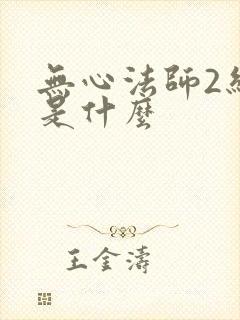 無心法師2結
是什麼
王金濤